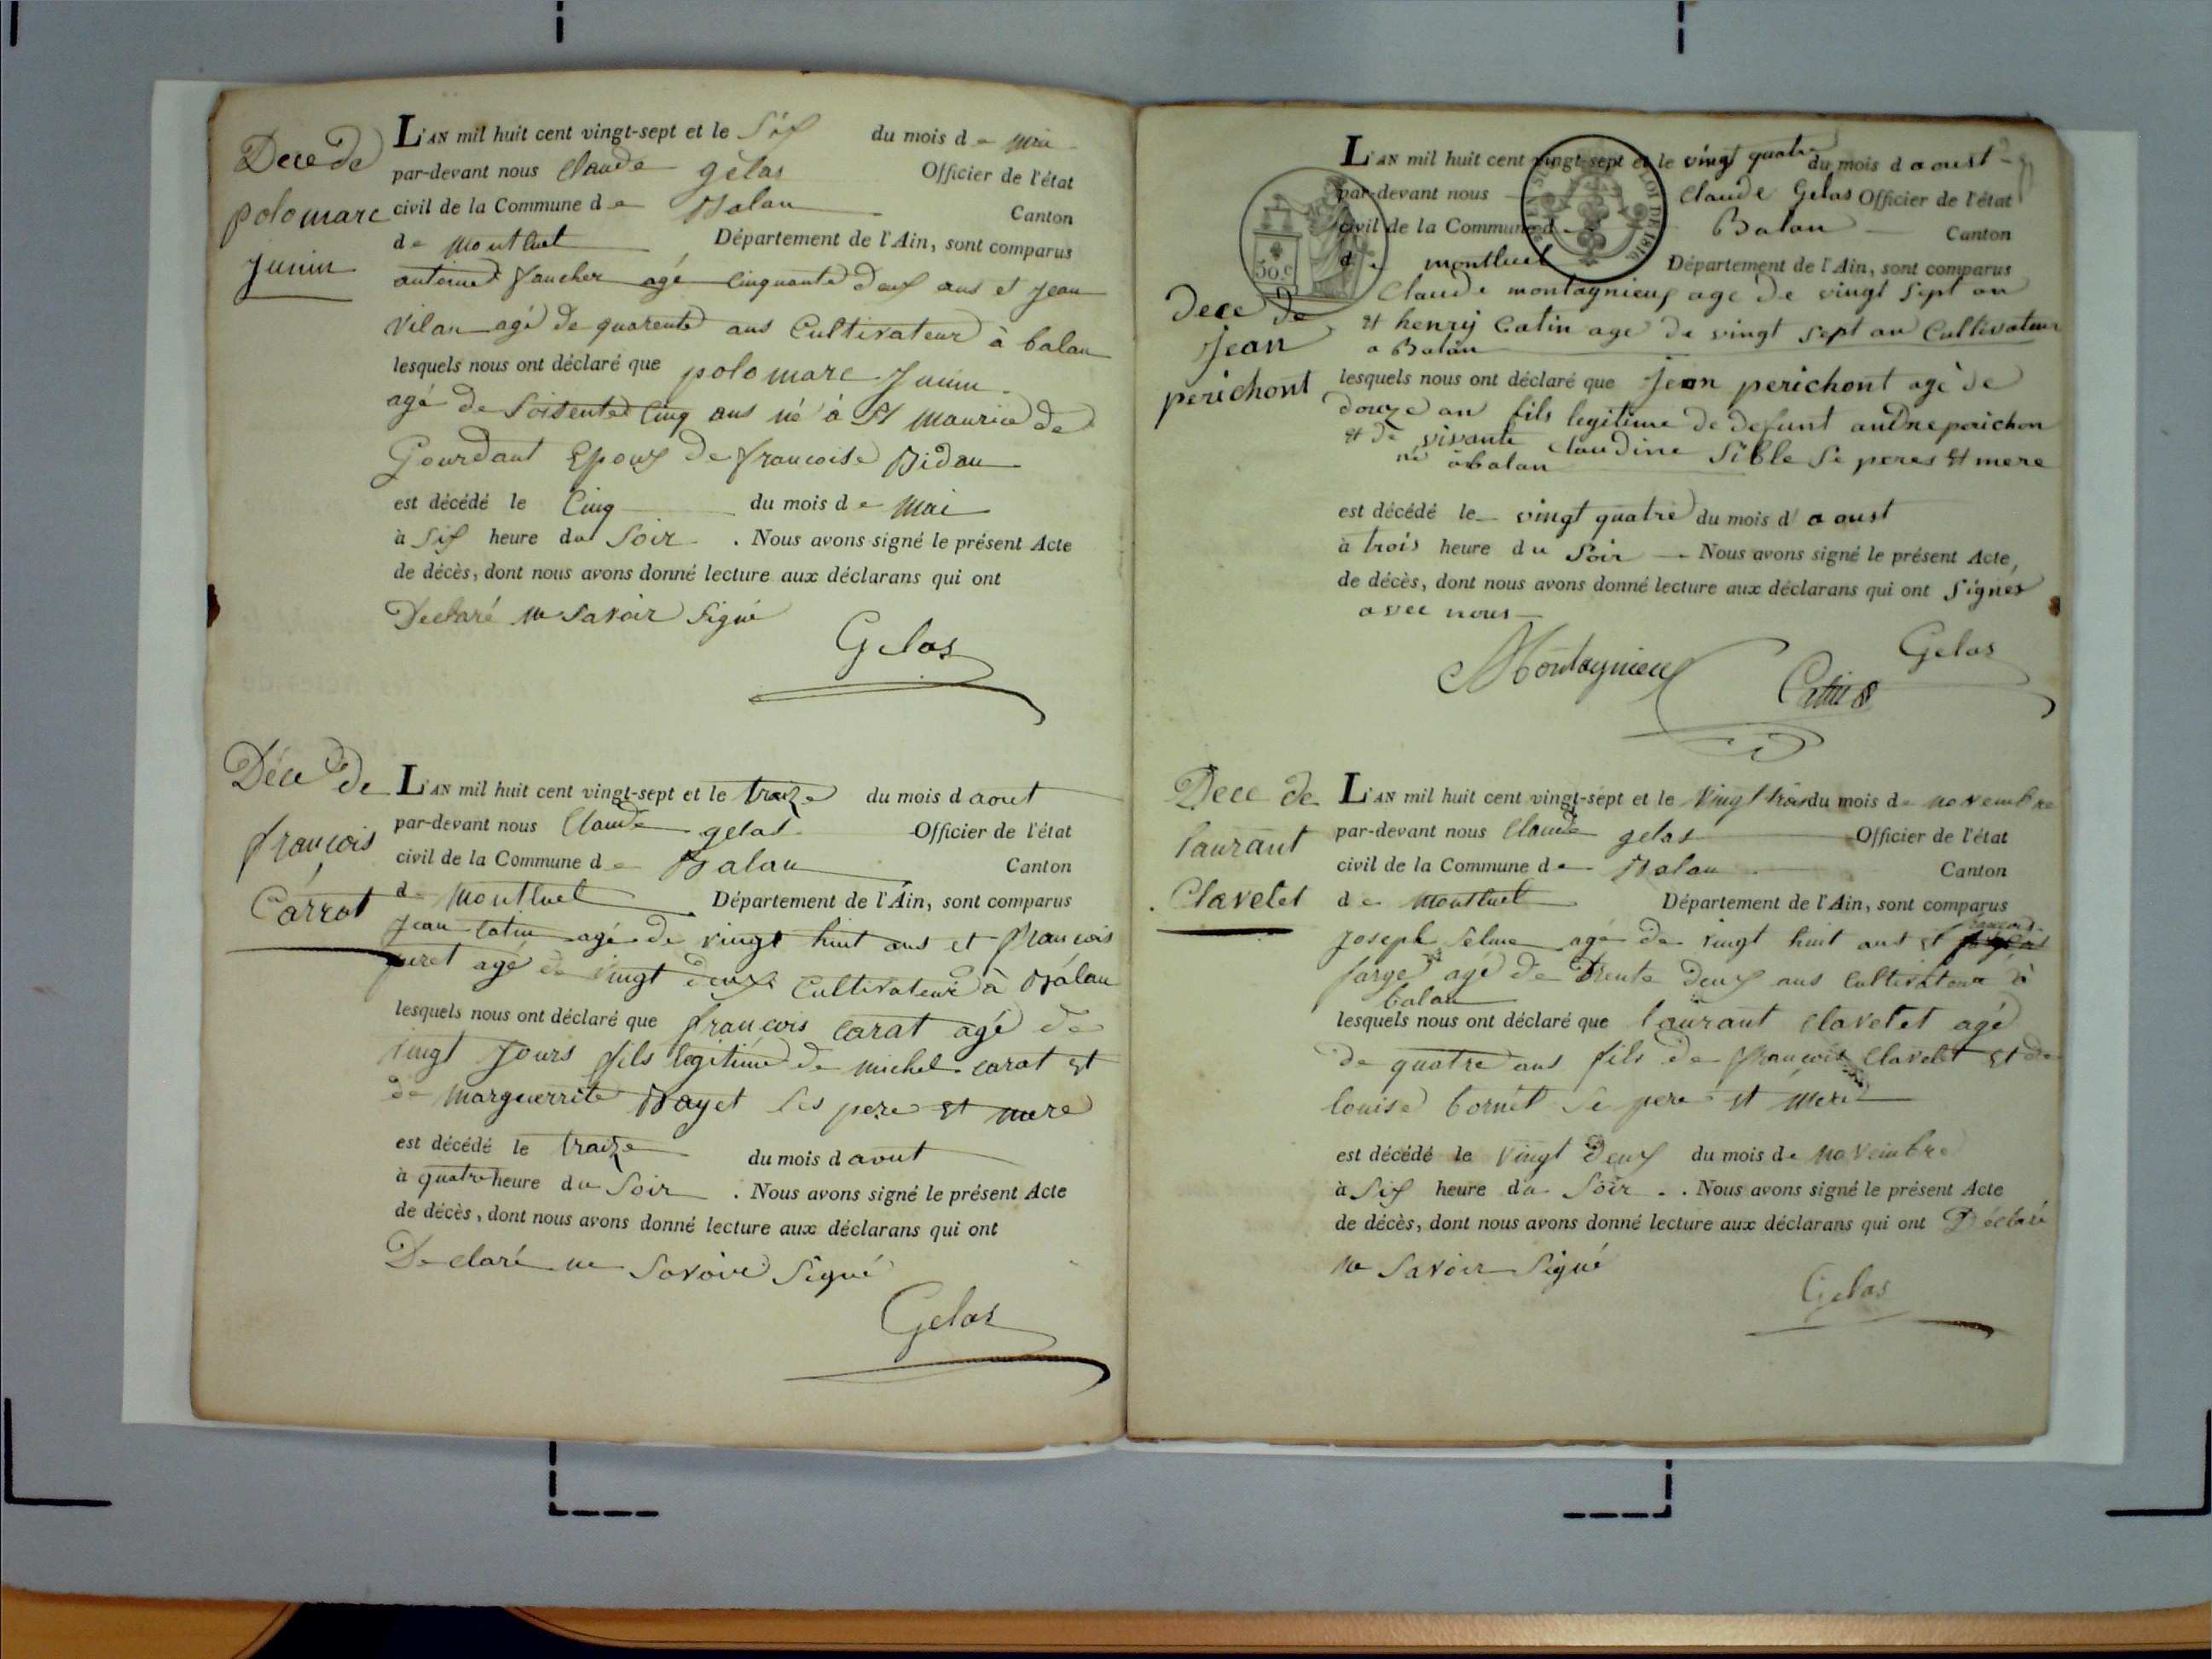 Dece de
polomarc
Junin
L'AN mil huit cent vingt-sept et le Six du mois de Mai
par-devant nous Claude gelas Officier de l'état
civil de la Commune de Balan Canton
de Montluel Département de l'Ain, sont comparus
antoine faucher agé Cinquante deux ans et Jean
Vilan agé de quarente ans Cultivateur à balan
lesquels nous ont déclaré que polomarc Junin
agé de Soisente Cinq ans né à St Maurice de
Gourdant Epoux de francoise Bidau
est décédé le Cinq du mois de Mai
à Six heure du Soir. Nous avons signé le présent Acte
de décès, dont nous avons donné lecture aux déclarans qui ont
Declaré ne Savoir Signé
Gelas
Déce de
françois
Carrat
L'AN mil huit cent vingt-sept et le traize du mois d aout
par-devant nous Claude gelas Officier de l'état
civil de la Commune de Balan Canton
de Montluel Département de l'Ain, sont comparus
Jean Catin agé de vingt huit ans et françois
agé de vingt deux Cultivateur à Balan
lesquels nous ont déclaré que françois Carat agé de
vingt Jours fils legitime de michel Carat et
de Marguerrite Bayet Ses pere et mere
est décédé le traize du mois d aout
à quatre heure du Soir. Nous avons signé le présent Acte
de décès, dont nous avons donné lecture aux déclarans qui ont
Declaré ne Savoir Signé
Gelas
Dece de
Jean
perichont
L'AN mil huit cent vingt-sept et le vingt quatre du mois d aoust
par-devant nous Claude Gelas Officier de l'état
civil de la Commune d Balan Canton
de montluel Département de l'Ain, sont comparus
Claude montagnieux age De vingt Sept an
et henry Catin age de vingt Sept an Cultivateur
a Balan
lesquels nous ont déclaré que Jean perichont agé de
douze an fils legitime de defunt andre perichon
et de vivante Claudine Sible Se peres et mere
né à balan
est décédé le vingt quatre du mois d' aoust
à trois heure du Soir Nous avons signé le présent Acte,
de décès, dont nous avons donné lecture aux déclarans qui ont Signés
avec nous
Gelas
Montagnieux Catin
50.c
LOI DE 1816
Dece de
laurant
Clavelet
L'AN mil huit cent vingt-sept et le Vingt trois du mois de novembre
par-devant nous Claude gelas Officier de l'état
civil de la Commune de Balan Canton
de Montluel Département de l'Ain, sont comparus
françois
Joseph Selme agé de vingt huit ans et
farge agé de Trente Deux ans Cultivateur à
balan
lesquels nous ont déclaré que laurant Clavelet agé
de quatre ans fils de françois Clavelet et de
louise bornet Se pere et mere
est décédé le Vingt Deux du mois de Novembre
à Six heure du Soir. . Nous avons signé le présent Acte
de décès, dont nous avons donné lecture aux déclarans qui ont Déclaré
ne Savoir Signé
Gelas